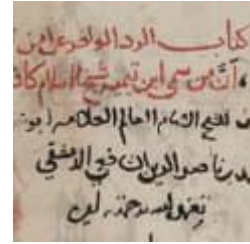 كتاب الرد الوافر على من
أن من سمى ابن تيمية شيخ الاسلام كافر
للشيخ الامام العالم العلامة ابو
ناصر الدين الدمشقي
تغمده الله برحمته